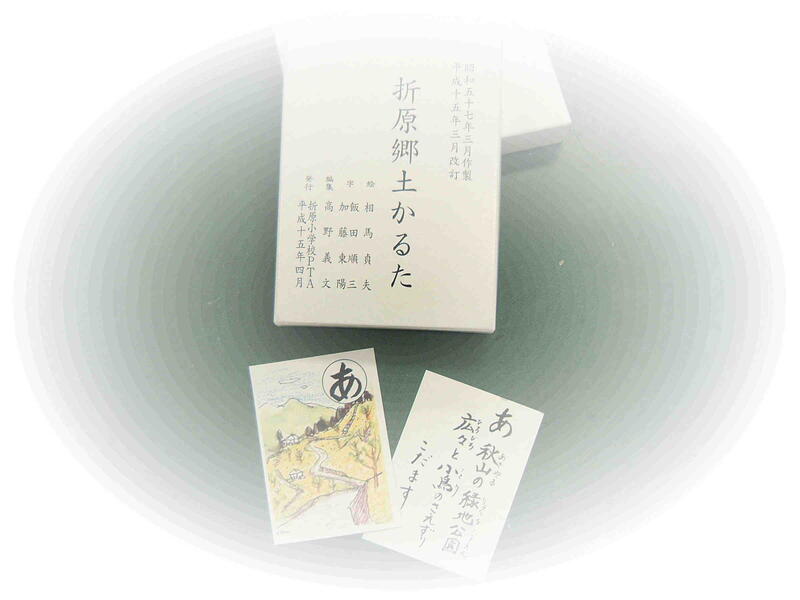 昭和五十七年三月作製
平成十五年三月改訂
折原郷土かるた
絵 相馬貞夫
字 飯田順三
加藤東陽
編集 高野義文
発行 折原小学校PTA
平成十五年四月
あ
あ
秋山の緑地公園
あきやま りょくち こうえん
広々と小鳥のさえずり
ひろびろ ことり
こだます